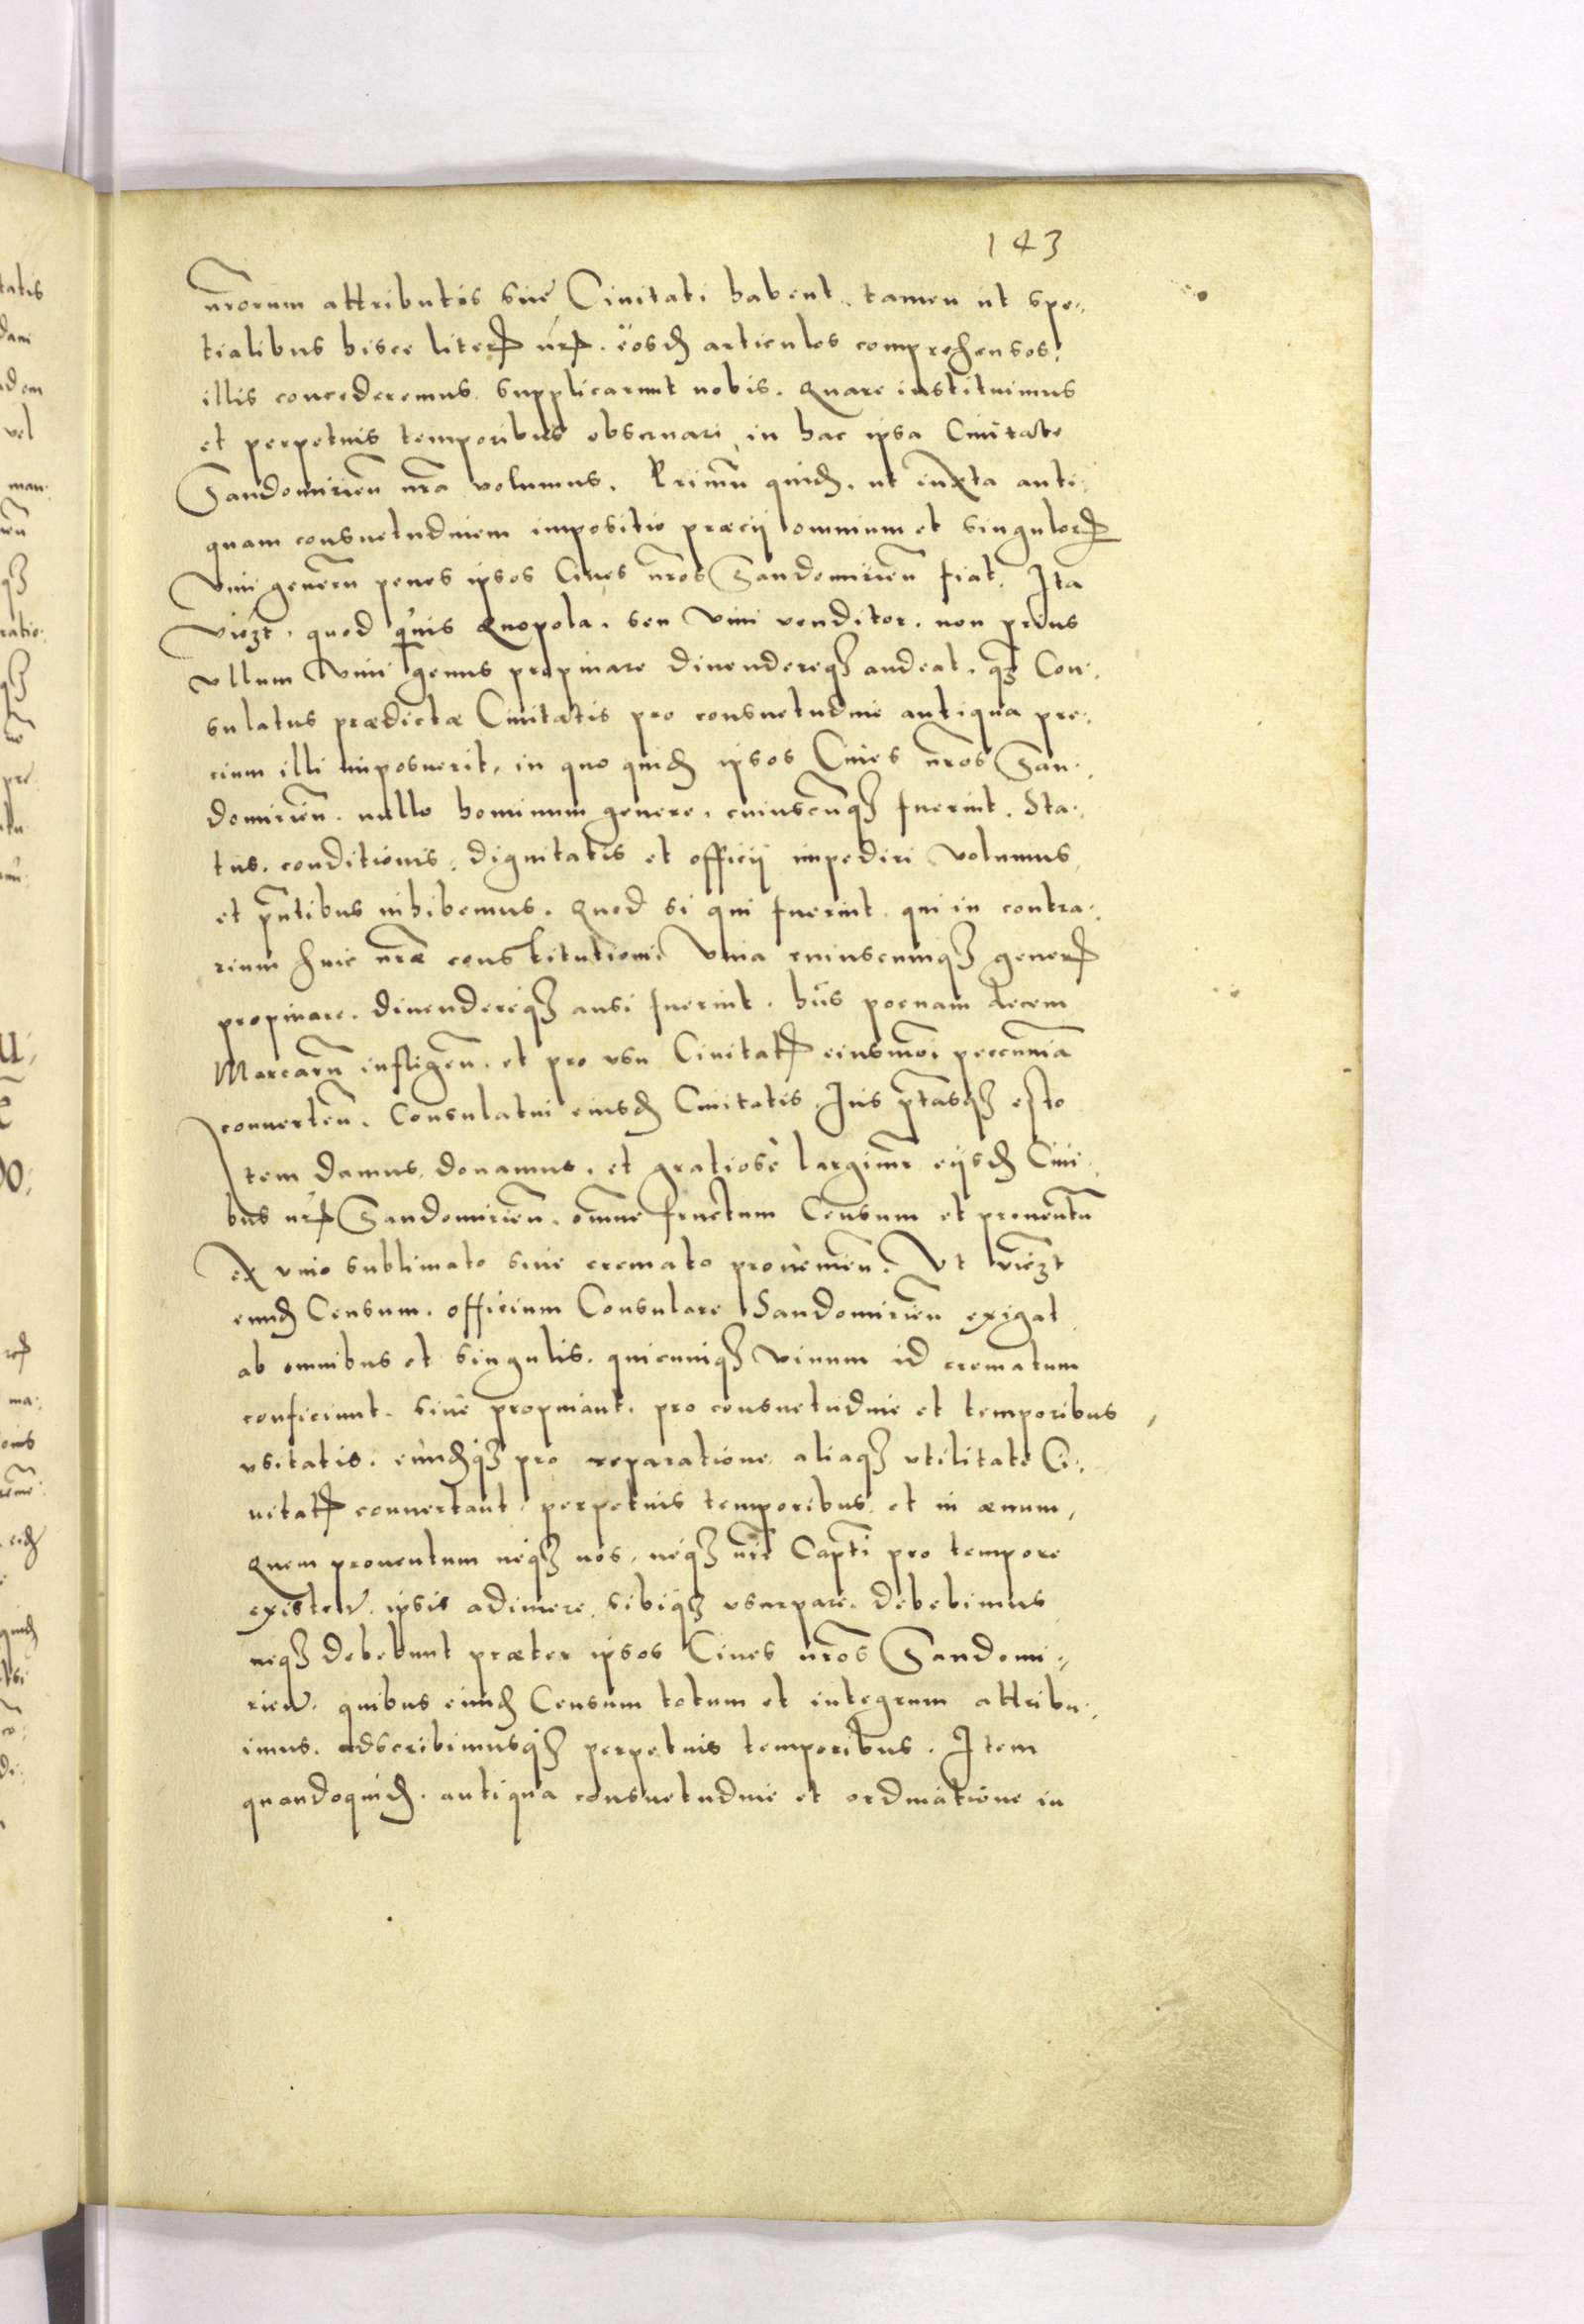 143
nr̃orum attributis siue Ciuitati habent. tamen ut spe-
tialibus hisce literꝭ nrꝭ. eosdẽ articulos comprehensos,
illis concederemus. supplicarunt nobis. Quare instituimus
et perpetuis temporibus obseruari in hac ipsa Ciuitate
Sandomirieñ nr̃a volumus. Primũ quidẽ. ut iuxta anti-
quam consuetudinem impositio præcij omnium et singulorꝭ
vini generũ penes ipsos Ciues nr̃os Sandomirieñ fiat. Ita
videꝫt. quod quiuis Œnopola. seu vini venditor. non prius
vllum vini genus propinare diuendereqꝫ audeat. qꝫ Con-
sulatus prædictæ Ciuitatis pro consuetudine antiqua pre-
cium illi imposuerit, in quo quidẽ ipsos Ciues nr̃os San-
domirieñ. nullo hominum genere. cuiuscũqꝫ fuerint. Sta-
tus. conditionis. dignitatis et officij impediri volumus
et pñtibus inhibemus. Quod si qui fuerint. qui in contra-
rium huic nr̃æ constitutioni vina cuiuscunqꝫ generꝭ
propinare. diuendereqꝫ ausi fuerint. hijs poenam decem
Marcarũ infligeñ. et pro vsu Ciuitatꝭ eiusmõi peccuniã
conuerteñ. Consulatui eiusdẽ Ciuitatis. Ius ptãsqꝫ esto
Item damus. donamus. et gratiosè largimr̃ eijsdẽ Ciui-
bus nrꝭ Sandomirieñ. omñe fructum Censum et prouentũ
ex vino sublimato siue cremato prouenieñ. Vt videꝫt
eundẽ Censum. officium Consulare Sandomirieñ exigat
ab omnibus et singulis. quicunqꝫ vinum id crematum
conficiunt. siue propinant. pro consuetudine et temporibus
vsitatis. eundẽqꝫ pro reparatione aliaqꝫ vtilitate Ci-
uitatꝭ conuertant. perpetuis temporibus et in æuum,
Quem prouentum neqꝫ nos, neqꝫ nr̃i Capti pro tempore
existeñ. ipsis adimere. sibiqꝫ vsurpare. debebimus
neqꝫ debebunt præter ipsos Ciues nr̃os Sandomi-
rieñ. quibus eundẽ Censum totum et integrum attribu-
imus. adscribimusqꝫ perpetuis temporibus. Item
quandoquidẽ. antiqua consuetudine et ordinatione in